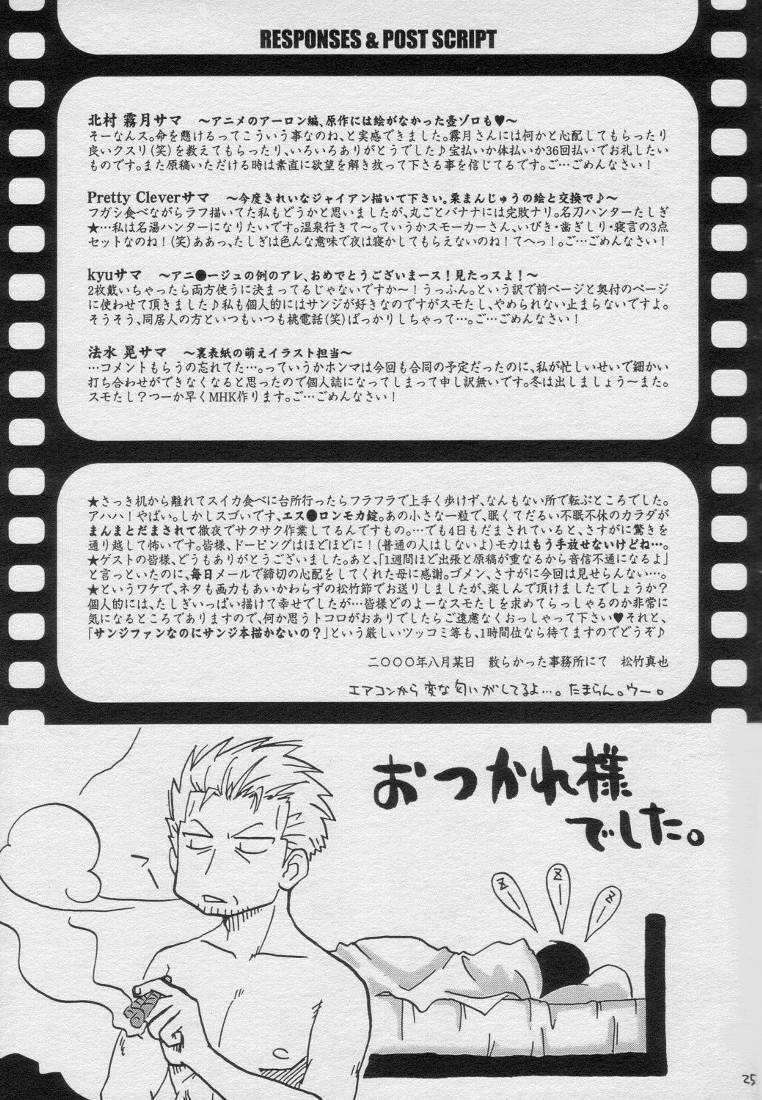 RESPONSES & POST SCRIPT
北村 霧月サマ　～アニメのアーロン編、原作には絵がなかった壺ゾロも♥～
そーなんス。命を懸けるってこういう事なのね、と実感できました。霧月さんには何かと心配してもらったり
良いクスリ(笑)を教えてもらったり、いろいろありがとうでした♪宝払いか体払いか36回払いでお礼したい
ものです。また原稿いただける時は素直に欲望を解き放って下さる事を信じてるです。ご…ごめんなさい！
Pretty Cleverサマ　～今度きれいなジャイアン描いて下さい。栗まんじゅうの絵と交換で♪～
フガシ食べながらラフ描いてた私もどうかと思いましたが、丸ごとバナナには完敗ナリ。名刀ハンターたしぎ
★…私は名湯ハンターになりたいです。温泉行きて～。ていうかスモーカーさん、いびき・歯ぎしり・寝言の3点
セットなのね！(笑)ああっ、たしぎは色んな意味で夜は寝かしてもらえないのね！てへっ！。ご…ごめんなさい！
kyuサマ　～アニ●ージュの例のアレ、おめでとうございまース！見たっスよ！～
2枚戴いちゃったら両方使うに決まってるじゃないですか～！うっふん。という訳で前ページと奥付のページ
に使わせて頂きました♪私も個人的にはサンジが好きなのですがスモたし、やめられない止まらないですよ。
そうそう、同居人の方といつもいつも桃電話(笑)ばっかりしちゃって…。ご…ごめんなさい！
法水 晃サマ　～裏表紙の萌えイラスト担当～
…コメントもらうの忘れてた…。っていうかホンマは今回も合同の予定だったのに、私が忙しいせいで細かい
打ち合わせができなくなると思ったので個人誌になってしまって申し訳無いです。冬は出しましょう～また。
スモたし？つーか早くMHK作ります。ご…ごめんなさい！
★さっき机から離れてスイカ食べに台所行ったらフラフラで上手く歩けず、なんもない所で転ぶところでした。
アハハ！やばい。しかしスゴいです、エス●ロンモカ錠。あの小さな一粒で、眠くてだるい不眠不休のカラダが
まんまとだまされて徹夜でサクサク作業してるんですもの。…でも4日もだまされていると、さすがに驚きを
通り越して怖いです。皆様、ドーピングはほどほどに！(普通の人はしないよ)モカはもう手放せないけどね…。
★ゲストの皆様、どうもありがとうございました。あと、「1週間ほど出張と原稿が重なるから音信不通になるよ」
と言っといたのに、毎日メールで締切の心配をしてくれた母に感謝。ゴメン、さすがに今回は見せらんない…。
★というワケで、ネタも画力もあいかわらずの松竹節でお送りしましたが、楽しんで頂けましたでしょうか？
個人的には、たしぎいっぱい描けて幸せでしたが…皆様どのよーなスモたしを求めてらっしゃるのか非常に
気になるところでありますので、何か思うトコロがおありでしたらご遠慮なくおっしゃって下さい♥それと、
「サンジファンなのにサンジ本描かないの？」という厳しいツッコミ等も、1時間位なら待てますのでどうぞ♪
二〇〇〇年八月某日　散らかった事務所にて　松竹真也
エアコンから変な匂いがしてるよ…。たまらん。ウー。
おつかれ様
でした。
Z Z Z
25